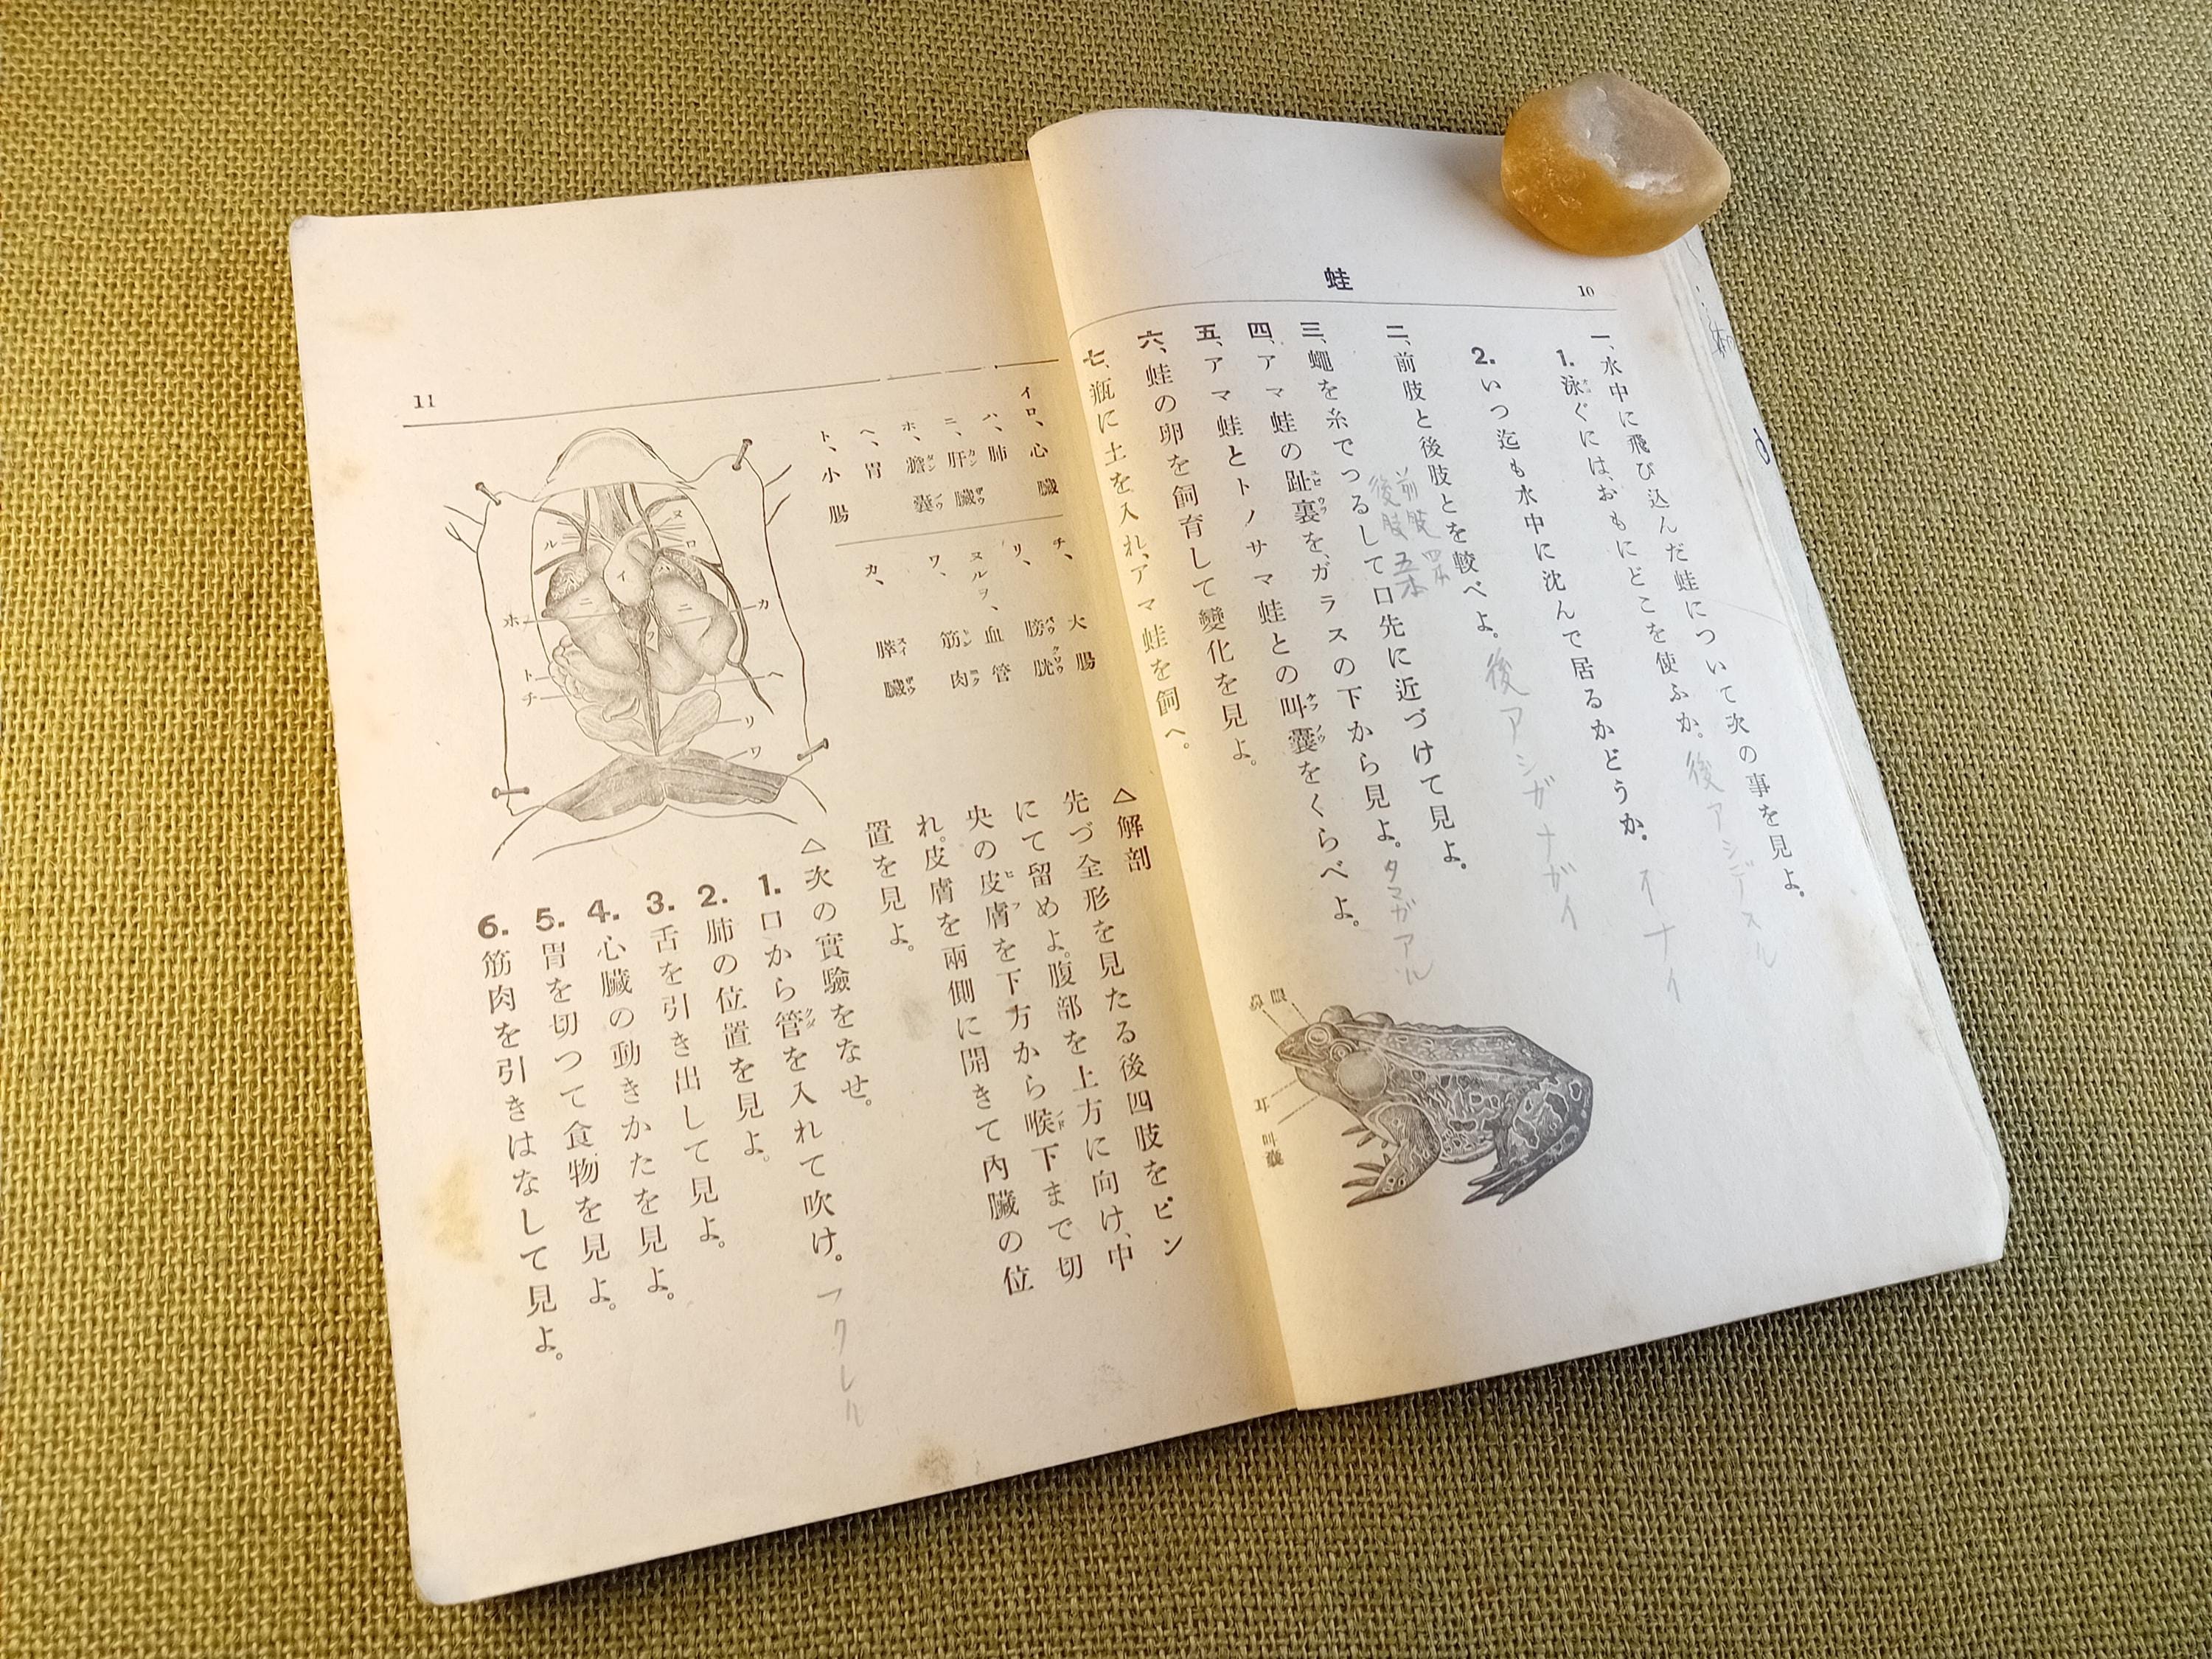 10
蛙
一、水中に飛び込んだ蛙について次の事を見よ。
1. 泳ぐには、おもにどこを使ふか。 後アシデスル
2. いつ迄も水中に沈んで居るかどうか。 イナイ
二、前肢と後肢とを較べよ。 後アシガナガイ
前肢 四本
後肢 五本
三、蠅を糸でつるして口先に近づけて見よ。
四、アマ蛙の趾裏を、ガラスの下から見よ。 タマガアル
五、アマ蛙とトノサマ蛙との叫嚢をくらべよ。
六、蛙の卵を飼育して變化を見よ。
七、瓶に土を入れ、アマ蛙を飼へ。
眼
鼻
耳
叫嚢
11
イロ、心臓
ハ、肺
ニ、肝臓
ホ、膽嚢
ヘ、胃
ト、小腸
チ、大腸
リ、膀胱
ヌルヲ、血管
ワ、筋肉
カ、膵臓
ヌ
ル
ロ
イ
ハ
ニ
ニ
カ
ホ
ヲ
ト
チ
ヘ
リ
ワ
△解剖
先づ全形を見たる後四肢をピン
にて留めよ。腹部を上方に向け、中
央の皮膚を下方から喉下まで切
れ。皮膚を兩側に開きて内臓の位
置を見よ。
△次の實驗をなせ。
1. 口から管を入れて吹け。 フクレル
2. 肺の位置を見よ。
3. 舌を引き出して見よ。
4. 心臓の動きかたを見よ。
5. 胃を切つて食物を見よ。
6. 筋肉を引きはなして見よ。